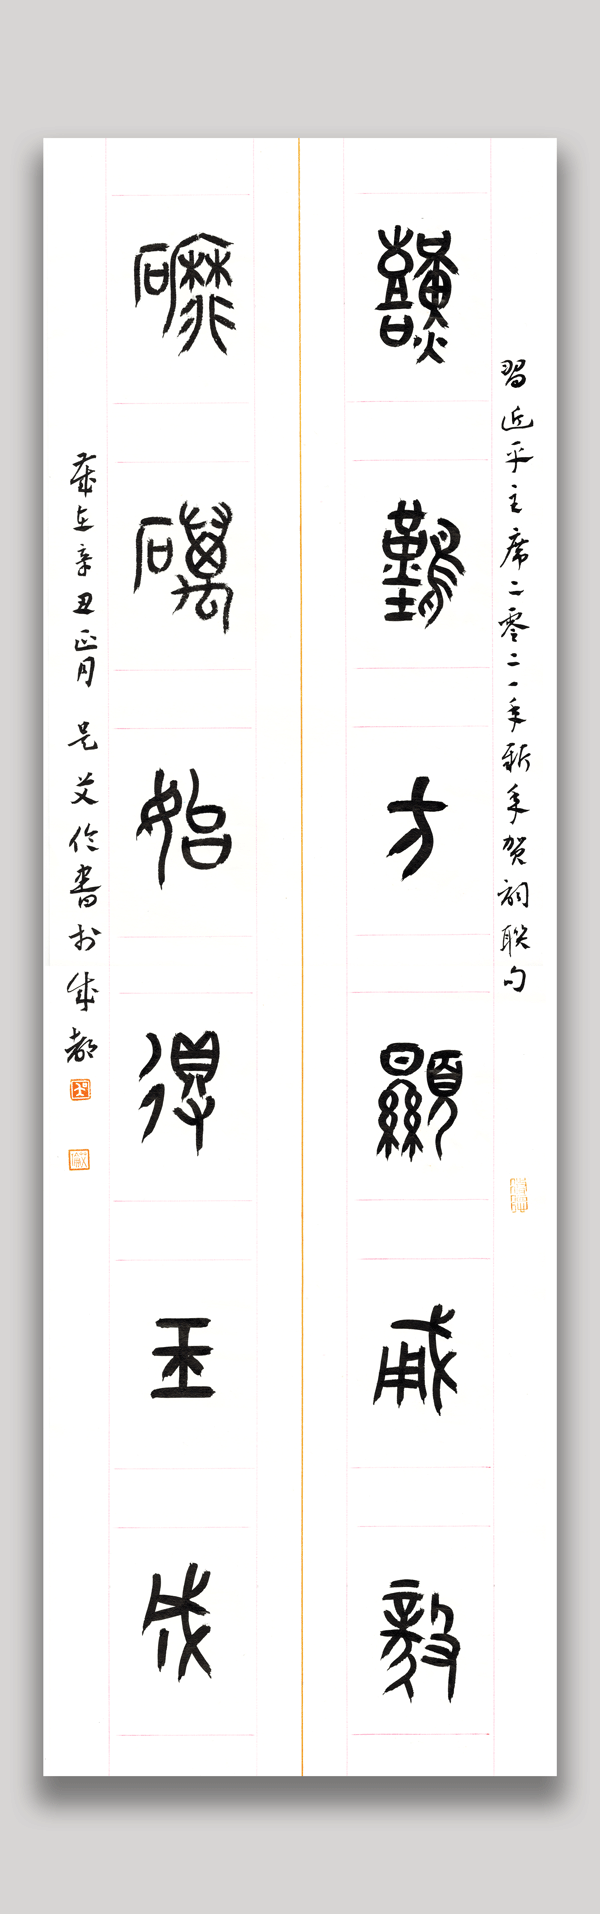 囏難方顯勇毅
習近平主席二零二一年新年贺词联句
磨礪始得玉成
歲在辛丑正月 書於成都